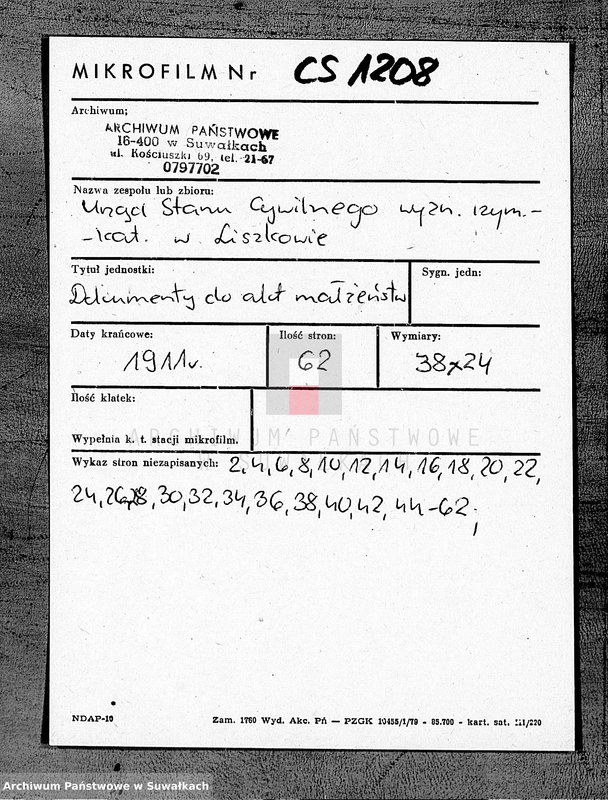 MIKROFILM Nr CS 1208
Archiwum;
ARCHIWUM PAŃSTWOWE
16-400 w Suwałkach
ul. Kościuszki 69, tel. 21-67
0797702
Nazwa zespołu lub zbioru:
Urząd Stanu Cywilnego wyzn. rzym.-
-kat. w Liszkowie
Tytuł jednostki:
Sygn. jedn:
Dokumenty do akt małżeństw
Daty krańcowe:
Ilość stron:
Wymiary:
1911r.
62
38x24
Ilość klatek:
ARCHIWUM PAŃSTWOWE
W SUWAŁKACH
Wypełnia k. t. stacji mikrofilm.
Wykaz stron niezapisanych: 2,4,6,8,10,12,14,16,18,20,22,
24,26,28,30,32,34,36,38,40,42,44-62;
NDAP-10
Zam. 1760 Wyd. Akc. Pń — PZGK 10455/1/79 - 85.700 - kart. sat. III/220
Archiwum Państwowe w Suwałkach